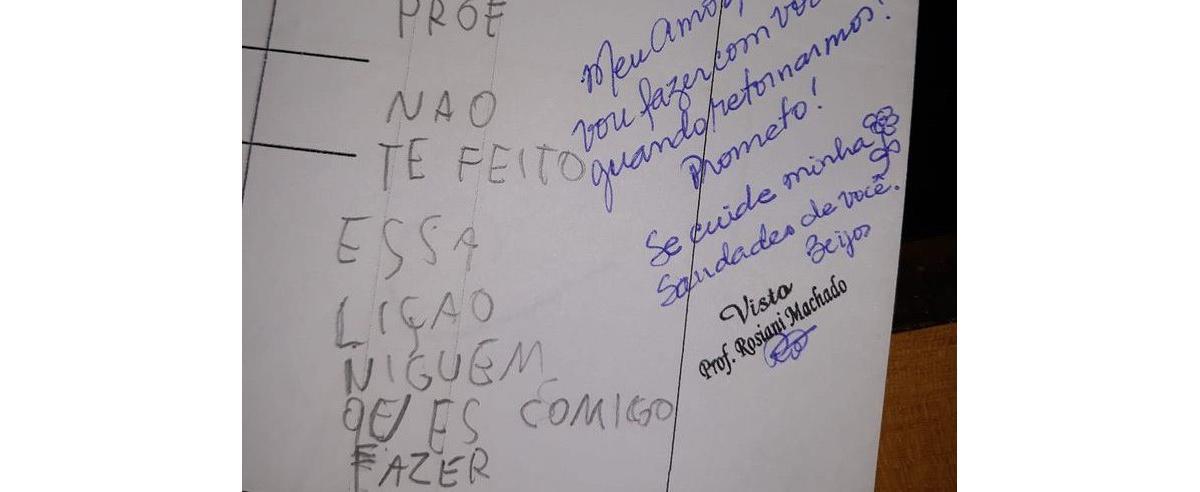 PROE
NAO
TE FEITO
ESSA
LIÇAO
NIGUEM
QE ES COMIGO
FAZER
Meu Amor,
vou fazer com você
quando retornarmos!
Prometo!
Se cuide minha
Saudades de você.
Beijos
Visto
Prof. Rosiani Machado